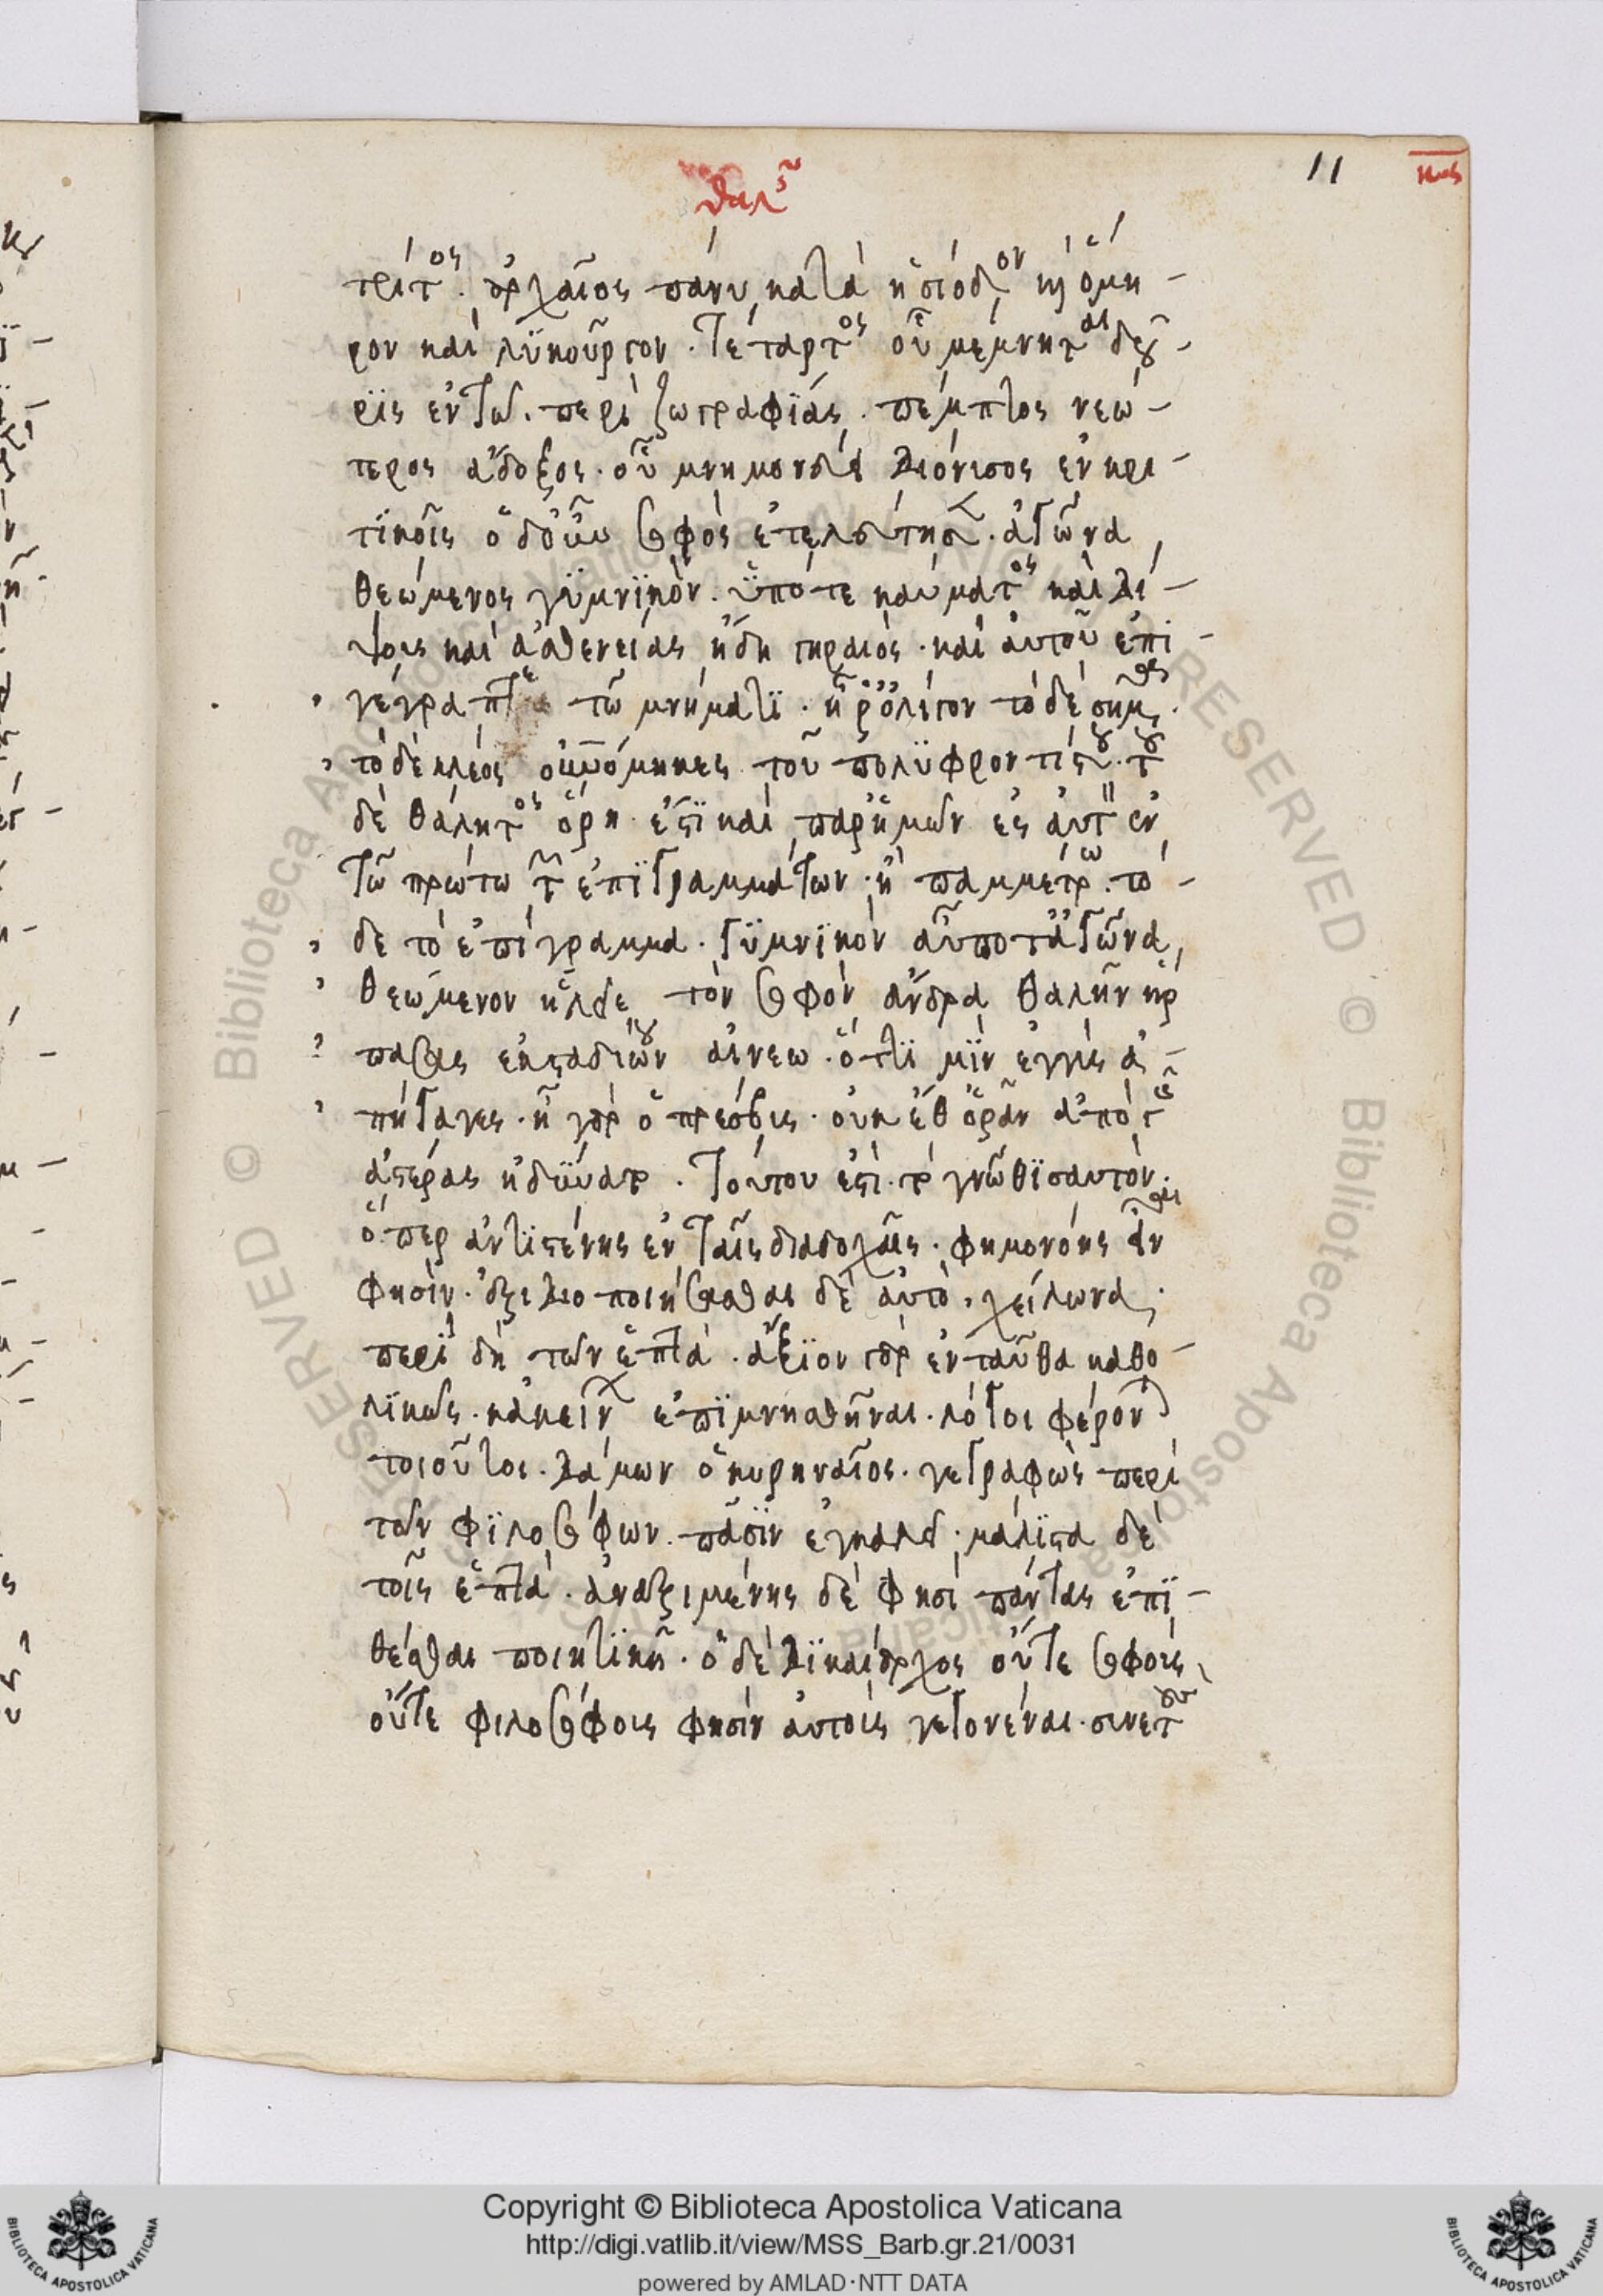 θαλῆς
11
τρίτος. ἀρχαῖος πάνυ κατὰ ἡσίοδον καὶ ὅμη-
ρον καὶ λϋκοῦργον. τέταρτος οὗ μέμνηται δού-
ρϊς ἐν τῶ. περὶ ζωγραφϊάς. πέμπτος νεώ-
τερος ἄδοξος. οὗ μνημονεύει διόνισος ἐν κρι-
τϊκοῖς ὁ δοὖν σοφὸς ἐτελεύτησεν. ἀγῶνα
θεώμενος γϋμνϊκόν. ὑπό τε καύματος καὶ δί-
ψοις καὶ ἀσθενείας ἤδη γηραιός. καὶ αὐτοῦ ἐπι
γέγραπται τῶ μνήματϊ. ἦ ῥ ὀλίγον τόδε σῆμα.
τὸ δὲ κλέος οὐρανόμηκες τοῦ πολϋφροντίστου. τοῦ
δὲ θάλητος ὅρη. ἔστϊ καὶ παρ ἡμῶν ἐς αὐτὸν ἐν
τῶ πρώτω τῶν ἐπϊγραμμάτων. ἢ παμμέτρω. τό-
δε τὸ ἐπίγραμμα. γϋμνϊκὸν αὖ ποτ ἀγῶνα
θεώμενον ἠέλιε τὸν σοφὸν ἄνδρα θαλῆν ἥρ
πασας ἐκ σταδιοῦ αἰνέω. ὅττϊ μϊν ἐγγὺς ἀ-
πήγαγες. ἦ γὰρ ὁ πρέσβις. οὐκ ἔθ ὁρᾶν ἀπὸ γῆς
ἀστέρας ἠδϋνατο. τούτου ἐστὶ. τὸ γνῶθϊ σαυτόν.
ὅπερ ἀντϊσθένης ἐν ταῖς διαδοχαῖς. φημονόης εἶναι
φησὶν. ἐξιδιοποιήσασθαι δὲ αὐτὸ, χείλωνα.
περὶ δὴ τῶν ἑπτά. ἄξϊον γὰρ ἐνταῦθα καθο-
λϊκῶς. κἀκείνων ἐπϊμνησθῆναι. λόγοι φέρονται
τοιοῦτοι. δάμων ὁ κυρηναῖος. γεγραφὼς περὶ
τῶν φϊλοσόφων. πᾶσϊν ἐγκαλεῖ. μάλϊστα δὲ
τοῖς ἑπτά. ἀναξιμένης δέ φησι πάντας ἐπϊ-
θέσθαι ποιητϊκῆ. ὁ δὲ δϊκαίαρχος οὔτε σοφοὺς
οὔτε φιλοσόφοις φησὶν αὐτοὺς γεγονέναι. συνετοὺς
Copyright © Biblioteca Apostolica Vaticana
http://digi.vatlib.it/view/MSS_Barb.gr.21/0031
powered by AMLAD·NTT DATA